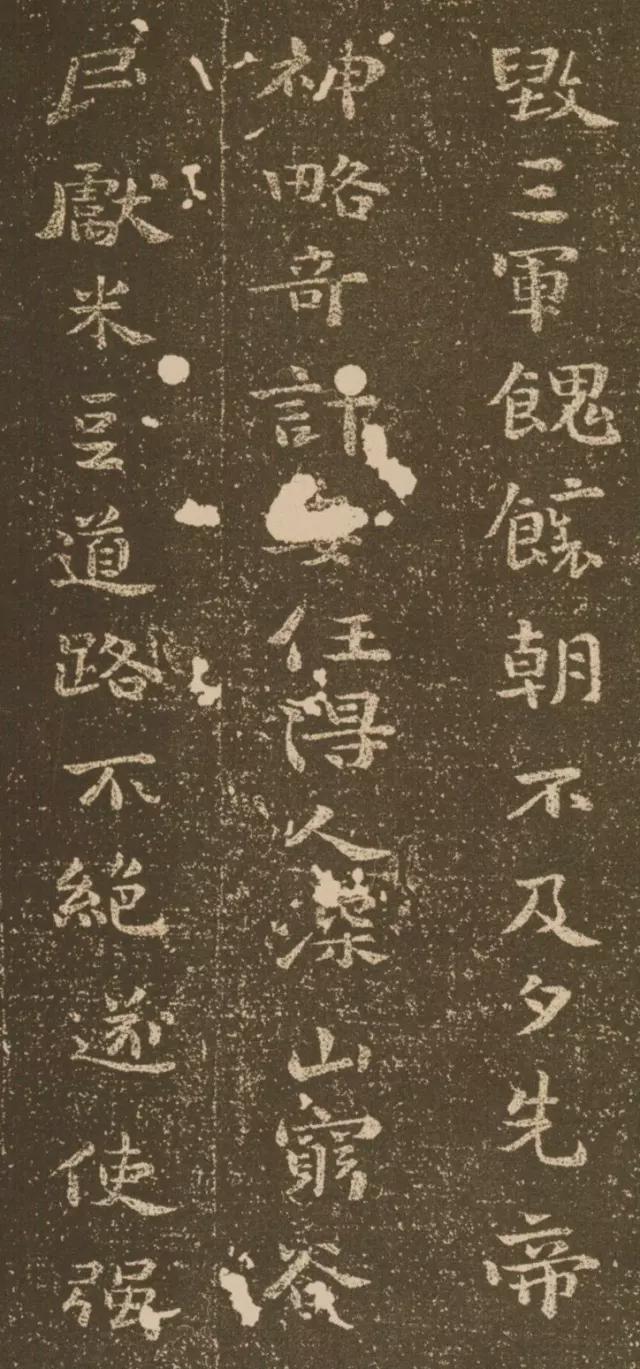 毀三軍餽饟朝不及夕先帝
神略奇計委任得人深山窮谷
民獻米豆道路不絕遂使強